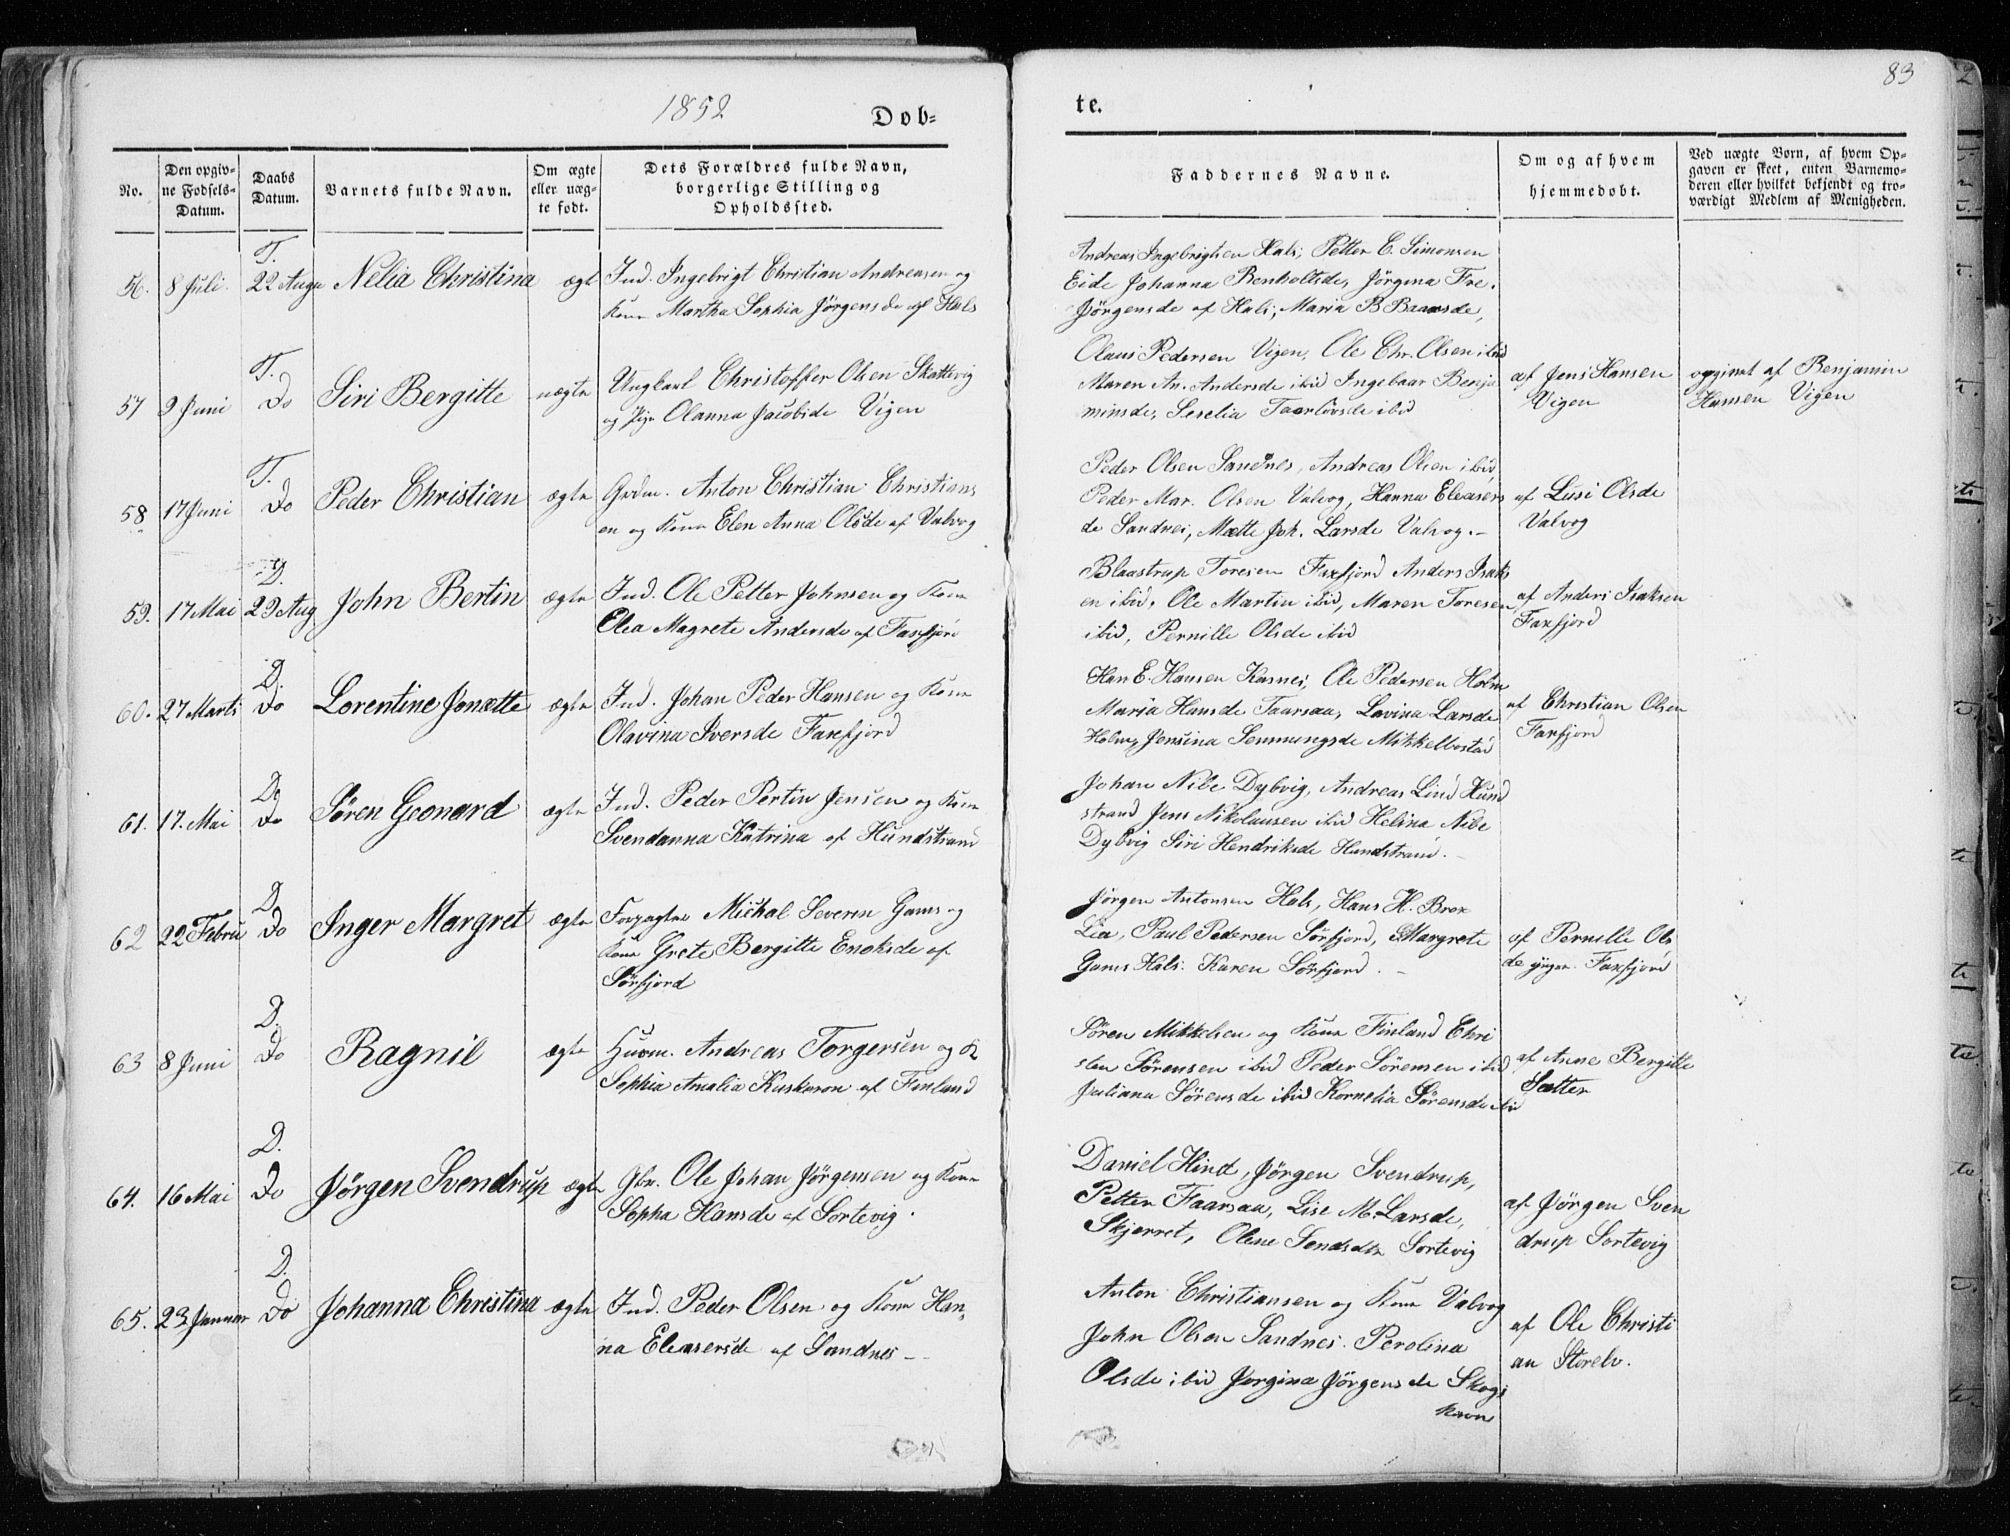 1852
Døb=
No.
Den opgiv=
ne Fødsels=
Datum.
Daabs
Datum.
Barnets fulde Navn.
Om ægte
eller uæg=
te født.
Dets Forældres fulde Navn,
borgerlige Stilling og
Opholdssted.
T.
56. 8 Juli. 22 Augu Nelia Christina ægt Ind. Ingebrigt Christian Andreasen og
Kone Martha Sophia Jörgensde af Hals
T.
57 9 Juni Do Siri Bergitte uægte Ungkarl Christoffer Olsen Skattevig
og Pige Olanna Jacobsde Vigen
T.
58. 17 Juni Do Peder Christian ægte Grdm. Anton Christian Christians
en og Kone Elen Anna Olsde af Valvog
D.
59. 17 Mai 29 Aug John Bertin ægte Ind. Ole Petter Johnsen og Kone
Elea Magrete Andersde af Faxfjord
D.
60. 27 Marts Do Lorentine Jonætte ægte Ind. Johan Peder Hansen og Kone
Olavina Iversde Faxfjord
D.
61. 17. Mai Do Sören Geonard ægte Ind. Peder Pertin Jensen og Kone
Svendanna Katrina af Hundstrand
D.
62 22 Febru Do Inger Margret ægte Forpagter Mickal Severin Gams og
Kone Grete Bergitte Enoksde af
Sörfjord
D.
63 8 Juni Do Ragnil ægte Huusm. Andreas Torgersen og K
Sophia Amalia Kuskeron af Finland
D.
64. 16 Mai Do Jörgen Svendrup ægte Gbr. Ole Johan Jörgensen og Kone
Sopha Hansde af Sortevig.
D.
65. 23 Januar Do Johanna Christina ægte Ind. Peder Olsen og Kone Han,
na Eleasersde af Sandnes
83
te.
Faddernes Navne.
Om og af hvem
hjemmedøbt.
Ved uægte Børn, af hvem Op=
gaven er skeet, enten Barnemo=
deren eller hvilket bekjendt og tro=
værdigt Medlem af Menigheden.
Andreas Ingebrigtsen Hals, Petter C. Simonsen
Eide Johanna Benholtsde, Jörgina Fre.
Jörgensde af Hals, Maria B Baarsde,
Olaus Pedersen Vigen, Ole Chr. Olsen ibid
Maren An. Andersde ibid Ingebaar Benja
minsde, Seselia Taarlövsde ibid
af Jens Hansen
Vigen
opgivet af Benjamin
Hansen Vigen
Peder Olsen Sandnes, Andreas Olsen ibid,
Peder Mar. Olsen Valvog, Hanna Eleasers
de Sandnes, Mætte Joh. Larsde Valvog.
af Lusi Olsde
Valvog
Blaastrup Toresen Faxfjord Anders Isaks
en ibid, Ole Martin ibid, Maren Toresen
ibid, Pernille Olsde ibid
af Anders Isaksen
Faxfjord
Han E. Hansen Kasnes, Ole Pedersen Holm
Maria Hansde Taarsaa, Lovina Larsde
Holm, Jensina Semmingsde Mikkelbostad
af Christian Olsen
Faxfjord
Johan Nibe Dybvig, Andreas Lind Hund
strand Jens Nikolausen ibid Helina Nibe
Dybvig Siri Hendriksde Hundstrand.
Jörgen Antonsen Hals, Hans H. Brox
Lia, Paul Pedersen Sörfjord, Margrete
Gams Hals. Karen Sörfjord.
af Pernille Ols
de yngre Faxfjord
Sören Mikkelsen og Kone Finland Chri
sten Sörensen ibid Peder Sörensen ibid
Juliana Sörensde ibid Kornelia Sörensde ibid
af Anne Bergitte
Sætter
Daniel Hind, Jörgen Svendrup,
Petter Faarsaa, Lise M. Larsde,
Skjerret, Olene Sendsdtr Sortevig
af Jörgen Sven
drup Sortevig
Anton Christiansen og Kone Valvog
John Olsen Sandnes. Perolina
Olsde ibid Jörgina Jörgensde Skogs
havn
af Ole Christi
an Storelv.